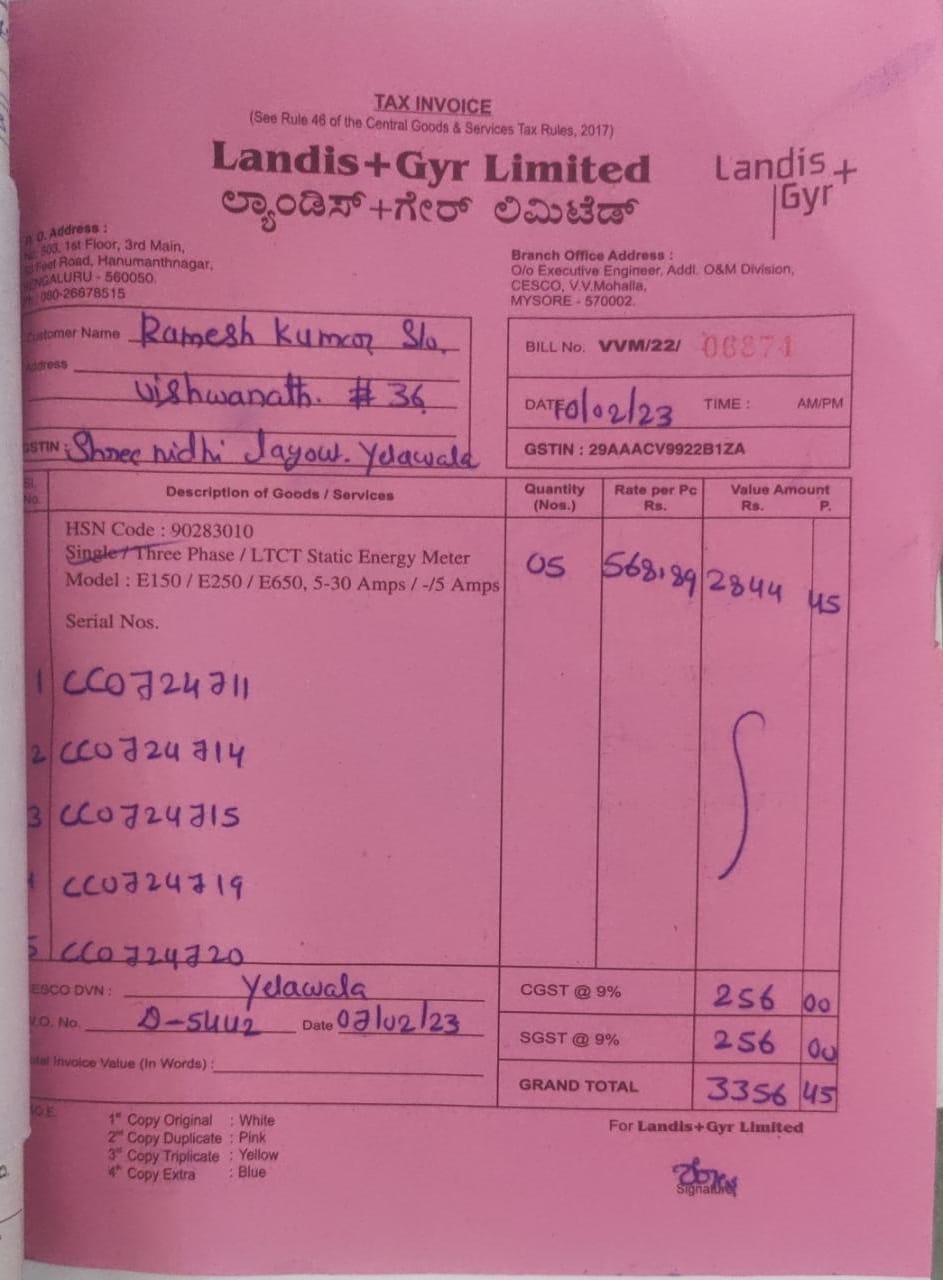 TAX INVOICE
(See Rule 46 of the Central Goods & Services Tax Rules, 2017)
Landis+Gyr Limited
ಲ್ಯಾಂಡಿಸ್+ಗೇರ್ ಲಿಮಿಟೆಡ್
Landis+
Gyr
Address :
1st Floor, 3rd Main,
Feet Road, Hanumanthnagar,
BENGALURU - 560050.
080-26678515
Branch Office Address :
O/o Executive Engineer, Addl. O&M Division,
CESCO, V.V.Mohalla,
MYSORE - 570002.
Customer Name Ramesh Kumar S/o
Address
Vishwanath. # 36
GSTIN : Shree nidhi Layout. Yelawala
BILL No. VVM/22/ 06874
DATE 10/02/23 TIME : AM/PM
GSTIN : 29AAACV9922B1ZA
Sl. No. Description of Goods / Services Quantity (Nos.) Rate per Pc Rs. Value Amount Rs. P.
HSN Code : 90283010
Single / Three Phase / LTCT Static Energy Meter 05 568.89 2844 45
Model : E150 / E250 / E650, 5-30 Amps / -/5 Amps
Serial Nos.
1 CC0724711
2 CC0724714
3 CC0724715
4 CC0724719
5 CC0724720
CESCO DVN : Yelawala
W.O. No. D-5442 Date 07/02/23
Total Invoice Value (In Words) :
CGST @ 9% 256 00
SGST @ 9% 256 00
GRAND TOTAL 3356 45
1st Copy Original : White
2nd Copy Duplicate : Pink
3rd Copy Triplicate : Yellow
4th Copy Extra : Blue
For Landis+Gyr Limited
Signature